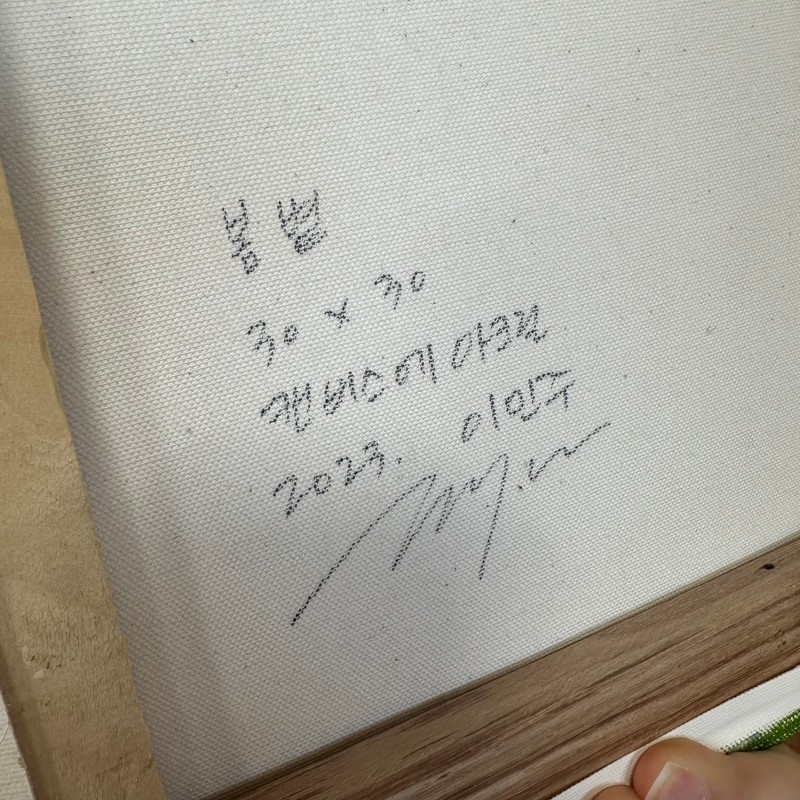 봄 볕
30 x 30
캔버스에 아크릴
2023. 이민주